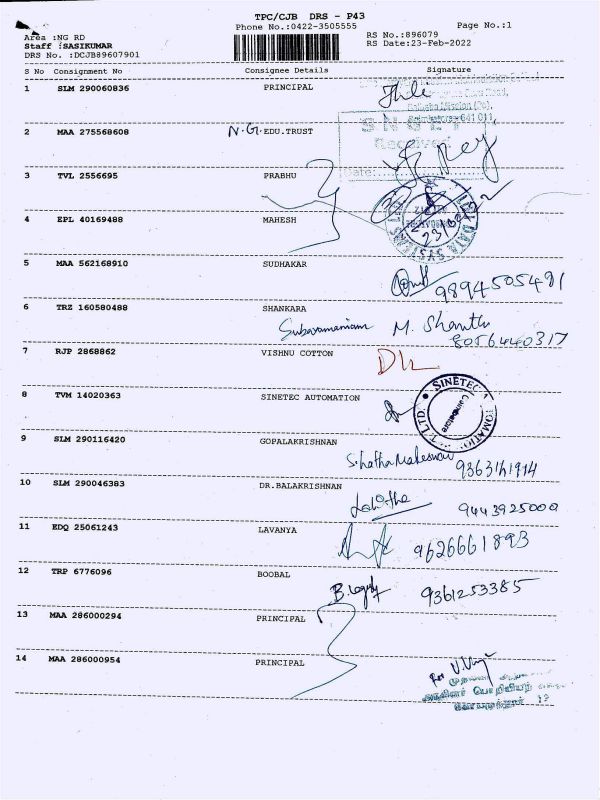 TPC/CJB DRS - P43
Phone No.:0422-3505555
Page No.:1
Area :NG RD
RS No.:896079
Staff :SASIKUMAR
RS Date:23-Feb-2022
DRS No. :DCJB89607901
S No Consignment No Consignee Details Signature
1 SLM 290060836 PRINCIPAL
641 011
2 MAA 275568608 N.G. EDU.TRUST
Received
Date:
3 TVL 2556695 PRABHU
4 EPL 40169488 MAHESH
5 MAA 562168910 SUDHAKAR
9894505491
6 TRZ 160580488 SHANKARA
Subramaniam M. Shanthi
8056440317
7 RJP 2868862 VISHNU COTTON
8 TVM 14020363 SINETEC AUTOMATION
SINETEC AUTOMATION LTD. Coimbatore
9 SLM 290116420 GOPALAKRISHNAN
9363141914
10 SLM 290046383 DR.BALAKRISHNAN
Lalitha 9443925000
11 EDQ 25061243 LAVANYA
9626661893
12 TRP 6776096 BOOBAL
9361253385
13 MAA 286000294 PRINCIPAL
14 MAA 286000954 PRINCIPAL